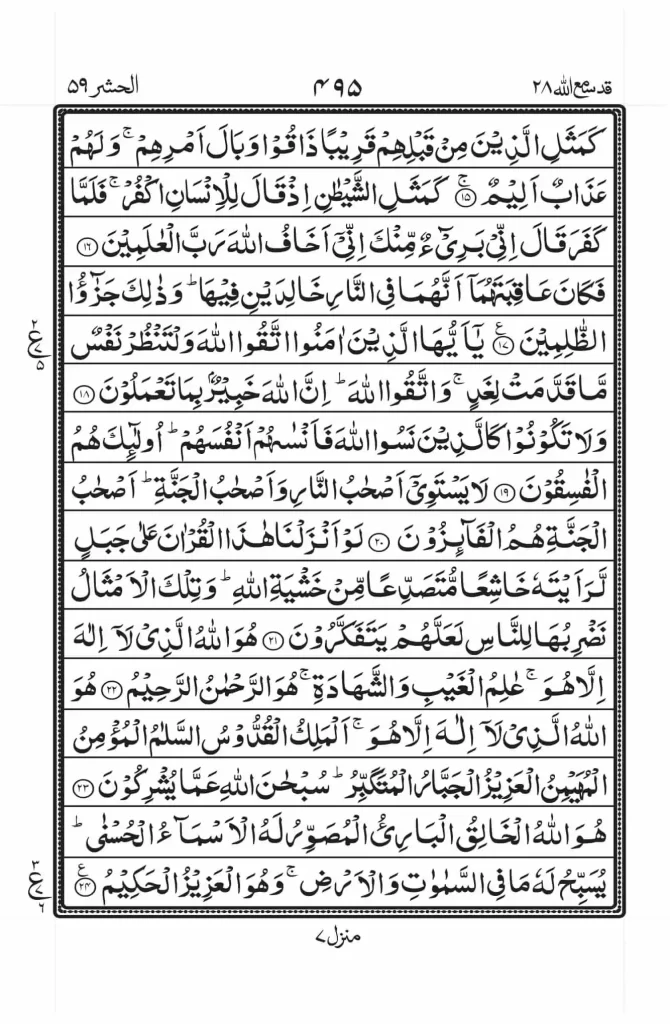 قد سمع الله ٢٨
٤٩٥
الحشر ٥٩
كَمَثَلِ الَّذِيْنَ مِنْ قَبْلِهِمْ قَرِيْبًا ذَاقُوْا وَبَالَ اَمْرِهِمْ ۚ وَلَهُمْ
عَذَابٌ اَلِيْمٌ ۚ ﴿١٥﴾ كَمَثَلِ الشَّيْطٰنِ اِذْ قَالَ لِلْاِنْسَانِ اكْفُرْ ۚ فَلَمَّا
كَفَرَ قَالَ اِنِّيْ بَرِيْٓءٌ مِّنْكَ اِنِّيْٓ اَخَافُ اللّٰهَ رَبَّ الْعٰلَمِيْنَ ﴿١٦﴾
فَكَانَ عَاقِبَتَهُمَآ اَنَّهُمَا فِي النَّارِ خَالِدَيْنِ فِيْهَا ؕ وَذٰلِكَ جَزٰٓؤُا
الظّٰلِمِيْنَ ﴿١٧﴾ ع يٰٓاَيُّهَا الَّذِيْنَ اٰمَنُوا اتَّقُوا اللّٰهَ وَلْتَنْظُرْ نَفْسٌ
مَّا قَدَّمَتْ لِغَدٍ ۚ وَاتَّقُوا اللّٰهَ ؕ اِنَّ اللّٰهَ خَبِيْرٌۢ بِمَا تَعْمَلُوْنَ ﴿١٨﴾
وَلَا تَكُوْنُوْا كَالَّذِيْنَ نَسُوا اللّٰهَ فَاَنْسٰىهُمْ اَنْفُسَهُمْ ؕ اُولٰٓئِكَ هُمُ
الْفٰسِقُوْنَ ﴿١٩﴾ لَا يَسْتَوِيْٓ اَصْحٰبُ النَّارِ وَاَصْحٰبُ الْجَنَّةِ ؕ اَصْحٰبُ
الْجَنَّةِ هُمُ الْفَآئِزُوْنَ ﴿٢٠﴾ لَوْ اَنْزَلْنَا هٰذَا الْقُرْاٰنَ عَلٰى جَبَلٍ
لَّرَاَيْتَهٗ خَاشِعًا مُّتَصَدِّعًا مِّنْ خَشْيَةِ اللّٰهِ ؕ وَتِلْكَ الْاَمْثَالُ
نَضْرِبُهَا لِلنَّاسِ لَعَلَّهُمْ يَتَفَكَّرُوْنَ ﴿٢١﴾ هُوَ اللّٰهُ الَّذِيْ لَآ اِلٰهَ
اِلَّا هُوَ ۚ عٰلِمُ الْغَيْبِ وَالشَّهَادَةِ ۚ هُوَ الرَّحْمٰنُ الرَّحِيْمُ ﴿٢٢﴾ هُوَ
اللّٰهُ الَّذِيْ لَآ اِلٰهَ اِلَّا هُوَ ۚ اَلْمَلِكُ الْقُدُّوْسُ السَّلٰمُ الْمُؤْمِنُ
الْمُهَيْمِنُ الْعَزِيْزُ الْجَبَّارُ الْمُتَكَبِّرُ ؕ سُبْحٰنَ اللّٰهِ عَمَّا يُشْرِكُوْنَ ﴿٢٣﴾
هُوَ اللّٰهُ الْخَالِقُ الْبَارِئُ الْمُصَوِّرُ لَهُ الْاَسْمَآءُ الْحُسْنٰى ؕ
يُسَبِّحُ لَهٗ مَا فِي السَّمٰوٰتِ وَالْاَرْضِ ۚ وَهُوَ الْعَزِيْزُ الْحَكِيْمُ ﴿٢٤﴾ ع
٢
ع
٥
٣
ع
٦
منزل ٧